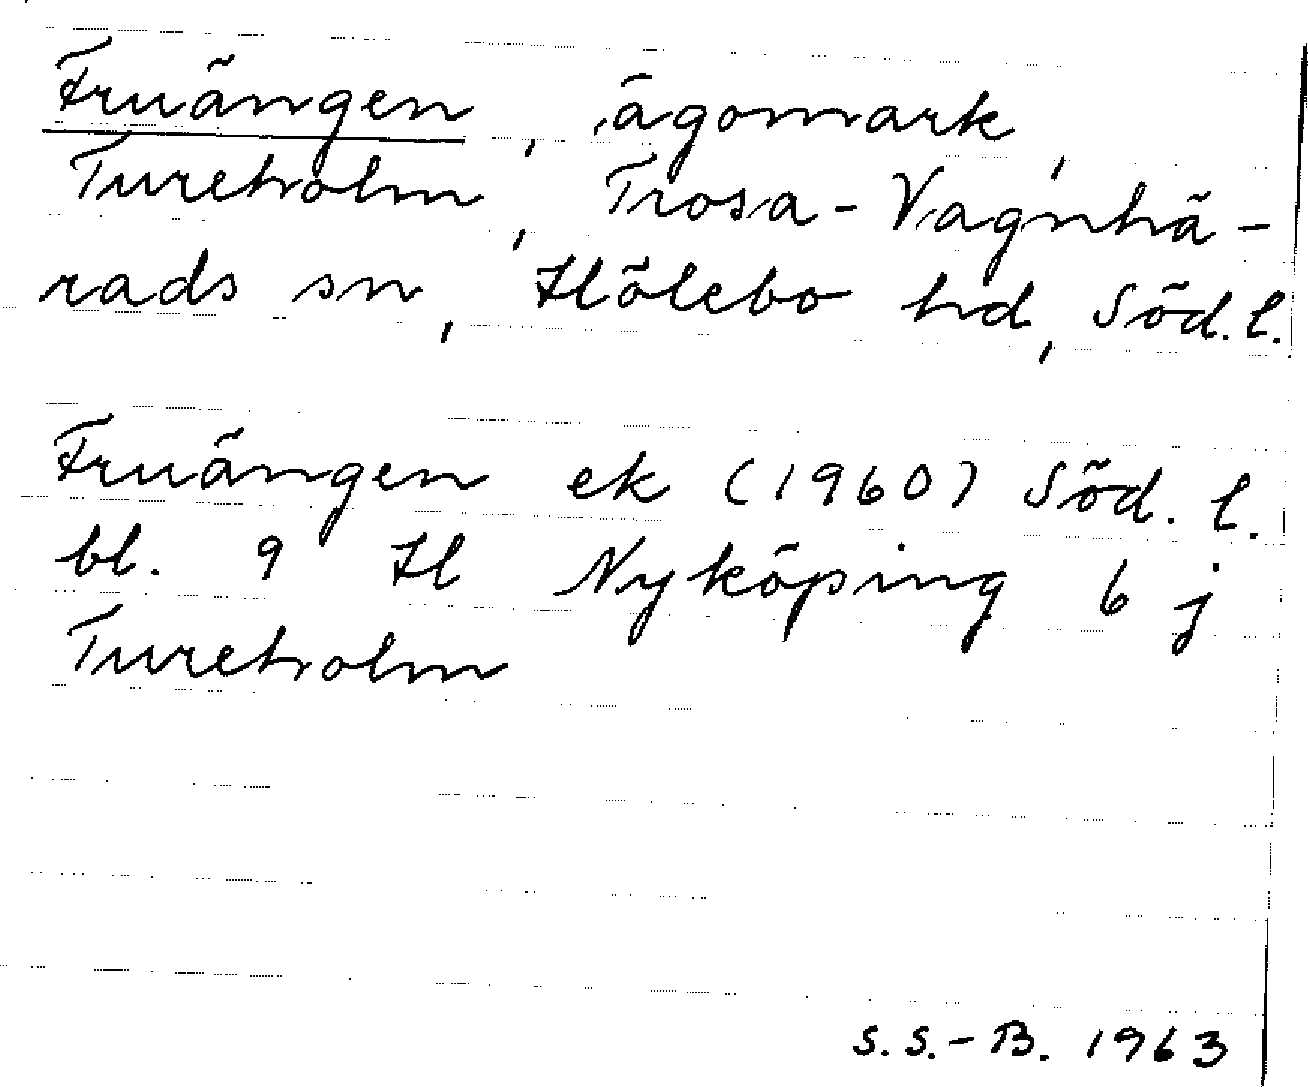 Fruängen, ägomark,
Tureholm, Trosa-Vagnhä-
rads sn, Hölebo hd, Söd. l.
Fruängen ek (1960) Söd. l.
bl. 9 Hl Nyköping 6 j
Tureholm
S.S.-B. 1963